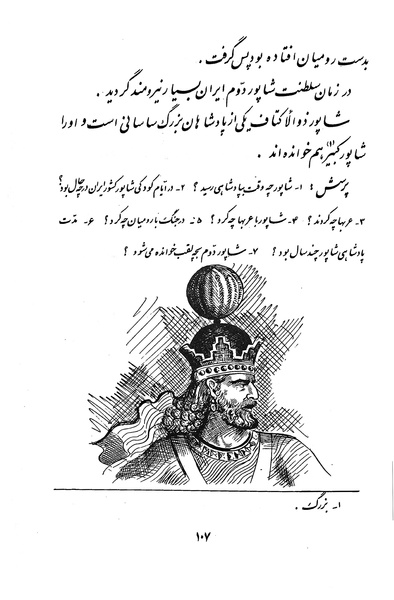 بدست رومیان افتاده بود پس گرفت .
در زمان سلطنت شاپور دوم ایران بسیار نیرومند گردید .
شاپور ذوالاکتاف یکی از پادشاهان بزرگ ساسانی است و او را
شاپور کبیر(۱) هم خوانده اند .
پرسش : ۱- شاپور چه وقت بپادشاهی رسید ؟ ۲- در ایام کودکی شاپور کشور ایران در چه حال بود ؟
۳- عربها چه کردند ؟ ۴- شاپور با عربها چه کرد ؟ ۵- در جنگ با رومیان چه کرد ؟ ۶- مدت
پادشاهی شاپور چند سال بود ؟ ۷- شاپور دوم بچه لقب خوانده می شود ؟
۱- بزرگ .
۱۰۷